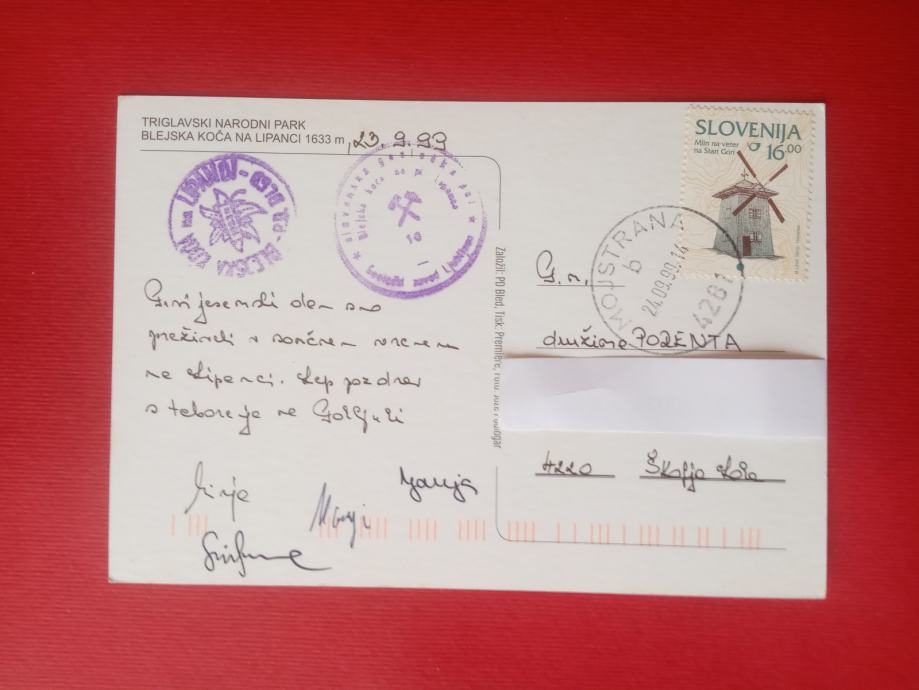 TRIGLAVSKI NARODNI PARK
BLEJSKA KOČA NA LIPANCI 1633 m, 23.9.99
P.D. BLED - LIPANCA
BLEJSKA KOČA na
slovenska geološka pot
Blejska koča na Lipance
19
Geološki zavod Ljubljana
Prvi jesenski dan smo
preživeli v sončnem vremenu
na Lipanci. Lep pozdrav
s taborenja na Goreljuki
Mirje
Marija
SLOVENIJA
Mlin na veter
na Stari Gori
16.00
MOJSTRANA
b
24.09.99.14
4281
G.n.
družina PORENTA
4220 Škofja Loka
Založil: PD Bled, Tisk: Premiere,